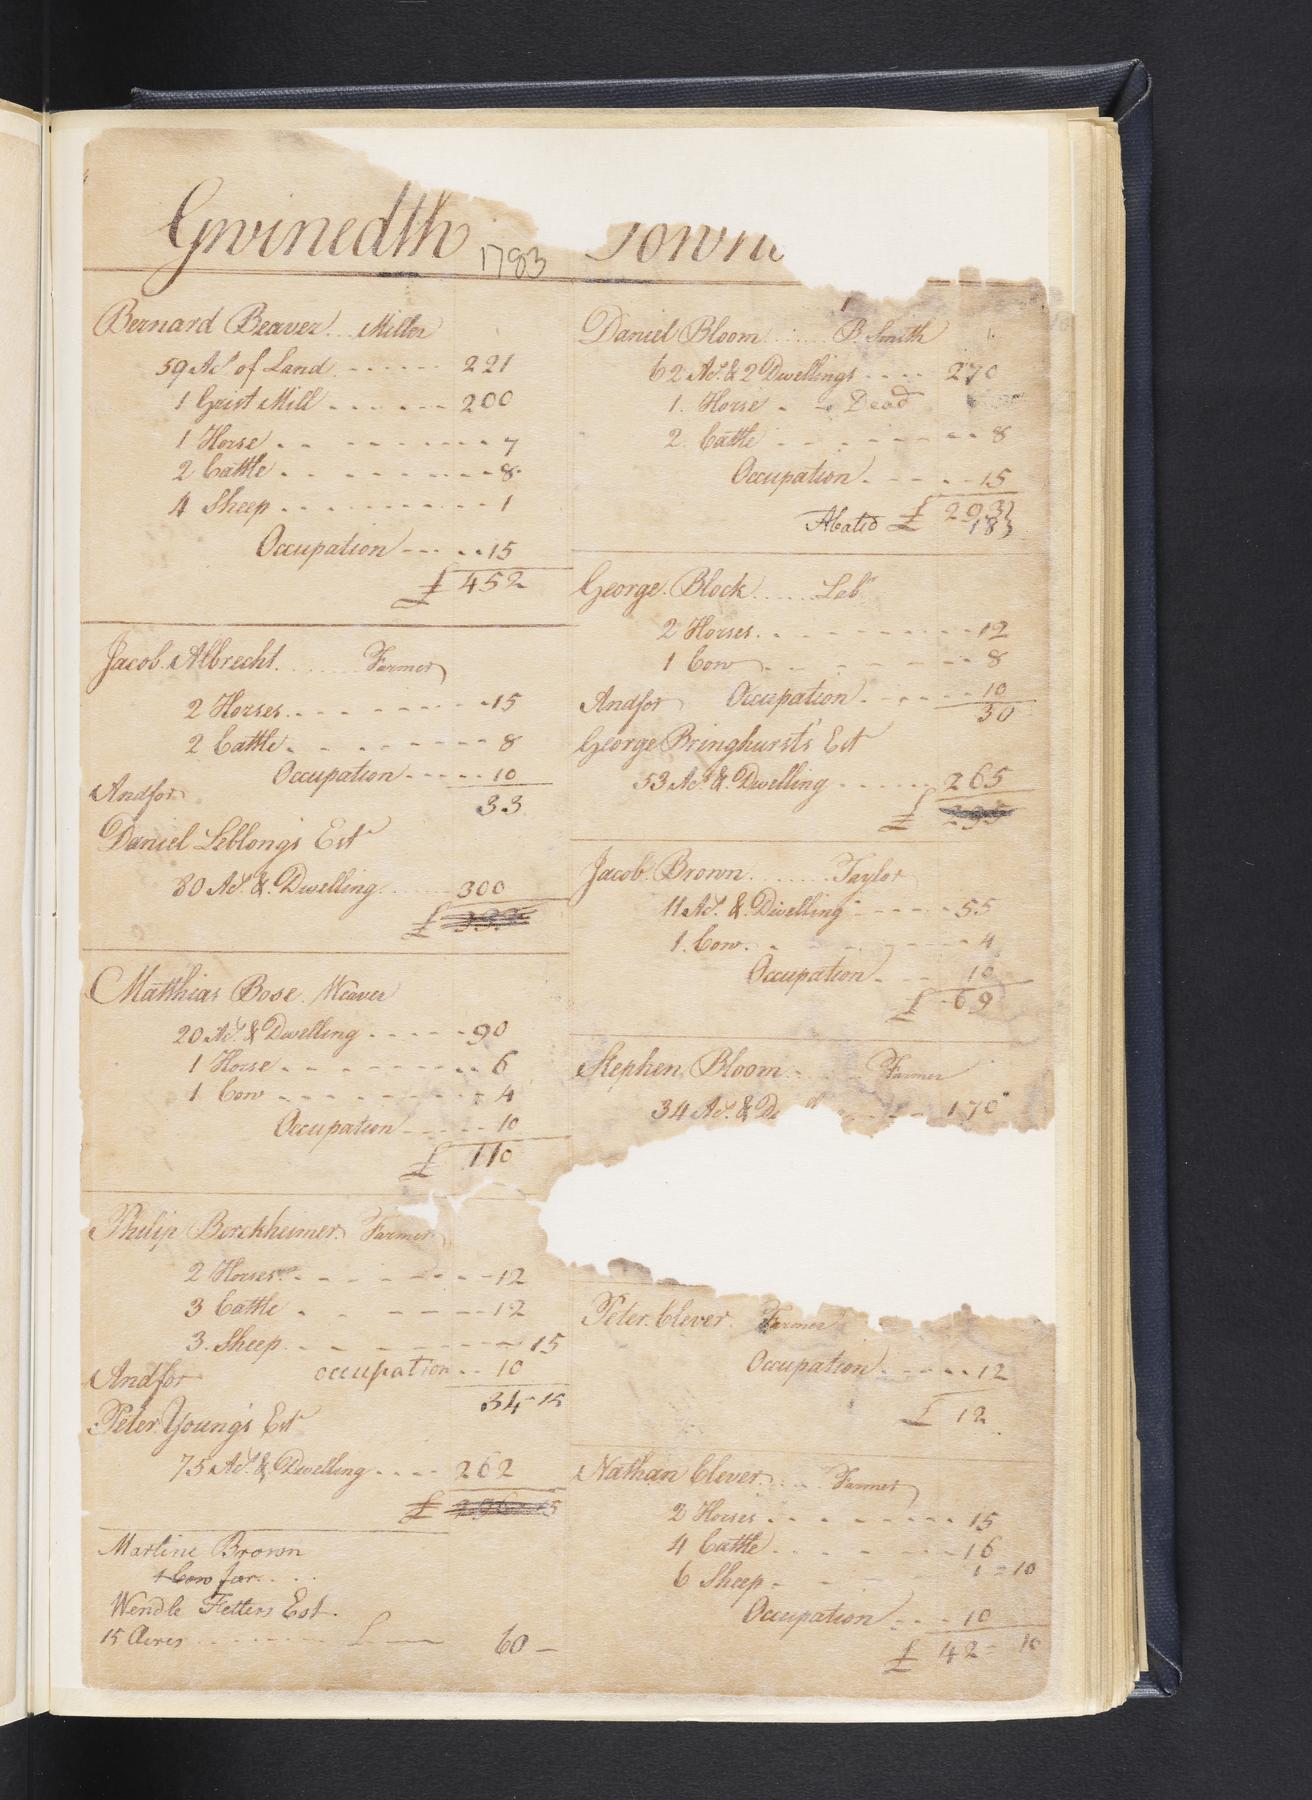 Gwinedth 1783 Town
Bernard Beaver ... Miller
59 Acs of Land ------ 221
1 Grist Mill ------ 200
1 Horse ------ 7
2 Cattle ------ 8
4 Sheep ------ 1
Occupation ---- 15
£ 452
Jacob Albrecht ...... Farmer
2 Horses ------ 15
2 Cattle ------ 8
Occupation ----- 10
Andfor
33
Daniel Leblong's Est
80 Acs & Dwelling ...... 300
£
Matthias Bose Weaver
20 Acs & Dwelling ----- 90
1 Horse ------ 6
1 Cow ------ 4
Occupation ----- 10
£ 110
Philip Berckheimer Farmer
2 Horses ------ 12
3 Cattle ------ 12
3 Sheep ------ 15
Andfor occupation -- 10
34-15
Peter Young's Est
75 Acs & Dwelling ---- 262
£
Martine Brown
1 Cow for ....
Wendle Fetters Est.
15 Acres ------ £ — 60 —
Daniel Bloom ...... B. Smith
62 Acs & 2 Dwellings ---- 270
1 Horse - - Dead
2 Cattle ------ 8
Occupation ----- 15
£ 293
Abated £ 183
George Block ...... Labr
2 Horses ------ 12
1 Cow ------ 8
Andfor Occupation ----- 10
30
George Bringhurst's Est
53 Acs & Dwelling ------ 265
£ 295
Jacob Brown ...... Taylor
11 Acs & Dwelling ----- 55
1 Cow ------ 4
Occupation - - 10
£ 69
Stephen Bloom ---- Farmer
34 Acs & D ---- 170
Peter Clever Farmer
Occupation ----- 12
£ 12
Nathan Clever ..... Farmer
2 Horses ------ 15
4 Cattle ------ 16
6 Sheep ------ 1 = 10
Occupation ---- 10
£ 42 = 10